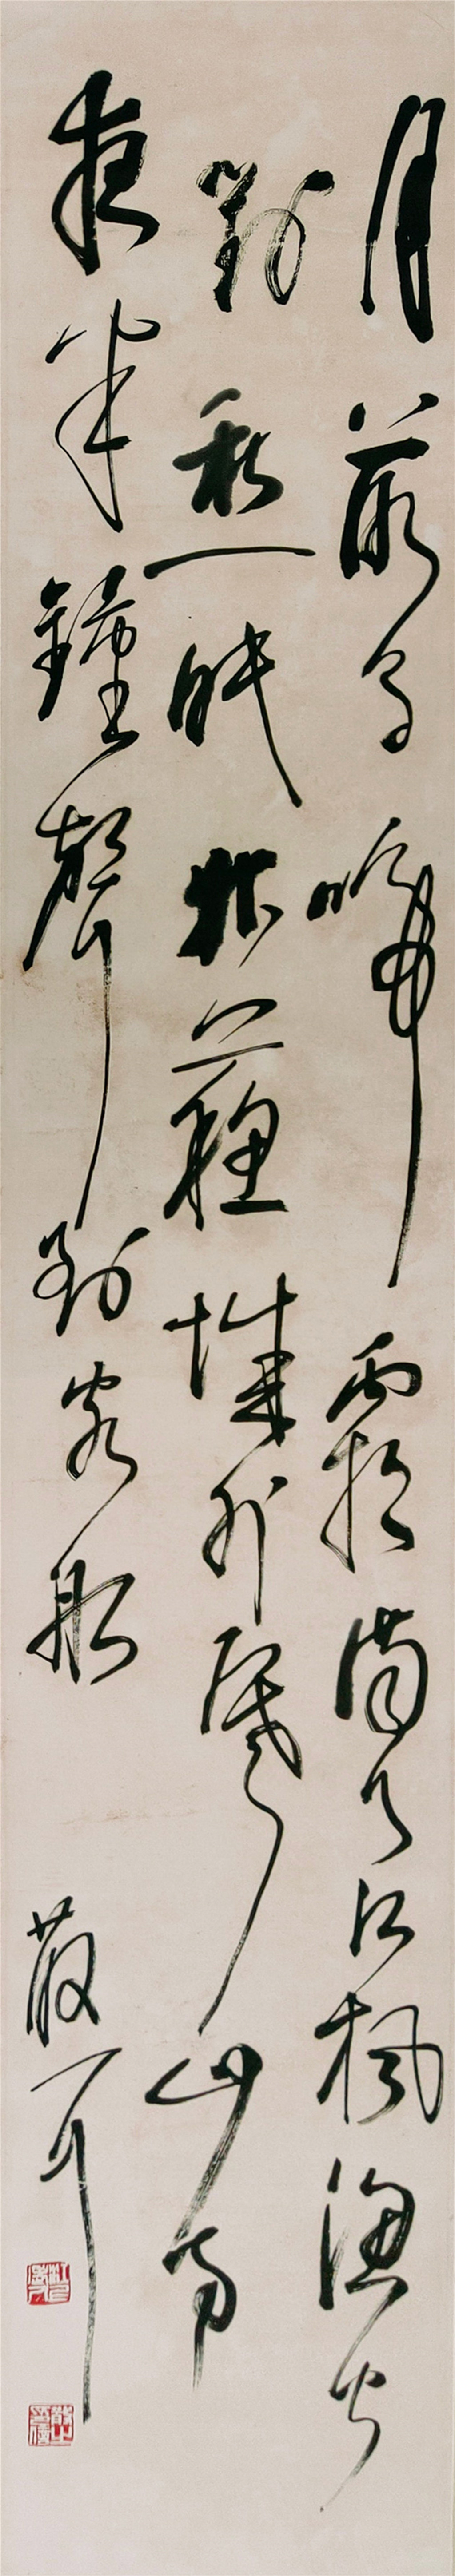 月落烏啼霜滿天江楓漁火
對愁眠姑蘇城外寒山寺
夜半鐘聲到客船 散耳